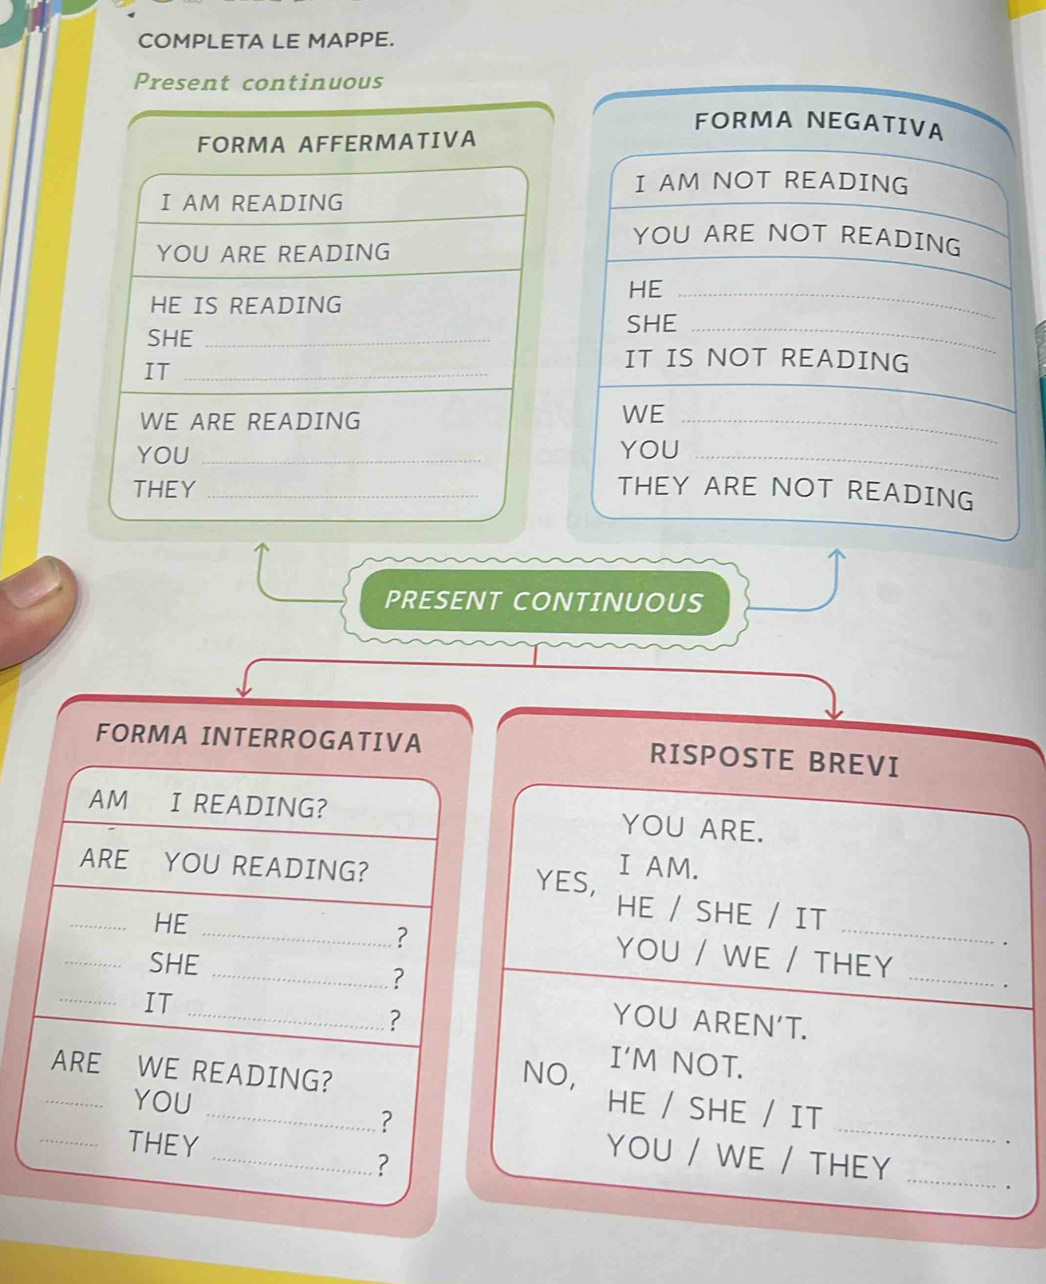 COMPLETA LE MAPPE.
Present continuous
FORMA AFFERMATIVA
I AM READING
YOU ARE READING
HE IS READING
SHE
IT
WE ARE READING
YOU
THEY
FORMA NEGATIVA
I AM NOT READING
YOU ARE NOT READING
HE
SHE
IT IS NOT READING
WE
YOU
THEY ARE NOT READING
PRESENT CONTINUOUS
FORMA INTERROGATIVA
AM I READING?
ARE YOU READING?
HE ?
SHE ?
IT ?
ARE WE READING?
YOU ?
THEY ?
RISPOSTE BREVI
YOU ARE.
I AM.
YES,
HE / SHE / IT .
YOU / WE / THEY .
YOU AREN'T.
I'M NOT.
NO,
HE / SHE / IT .
YOU / WE / THEY .